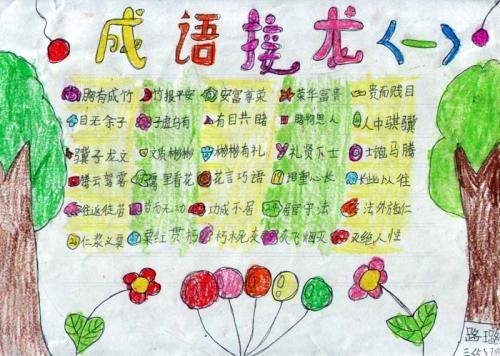 成语接龙〈一〉
胸有成竹 竹报平安 安富尊荣 荣华富贵 贵而贱目
目无余子 子虚乌有 有目共睹 睹物思人 人中骐骥
骥子龙文 文质彬彬 彬彬有礼 礼贤下士 士饱马腾
腾云驾雾 雾里看花 花言巧语 语重心长 长此以往
往返徒劳 劳而无功 功成不居 居官守法 法外施仁
仁浆义粟 粟红贯朽 朽木死灰 灰飞烟灭 灭绝人性
路璐